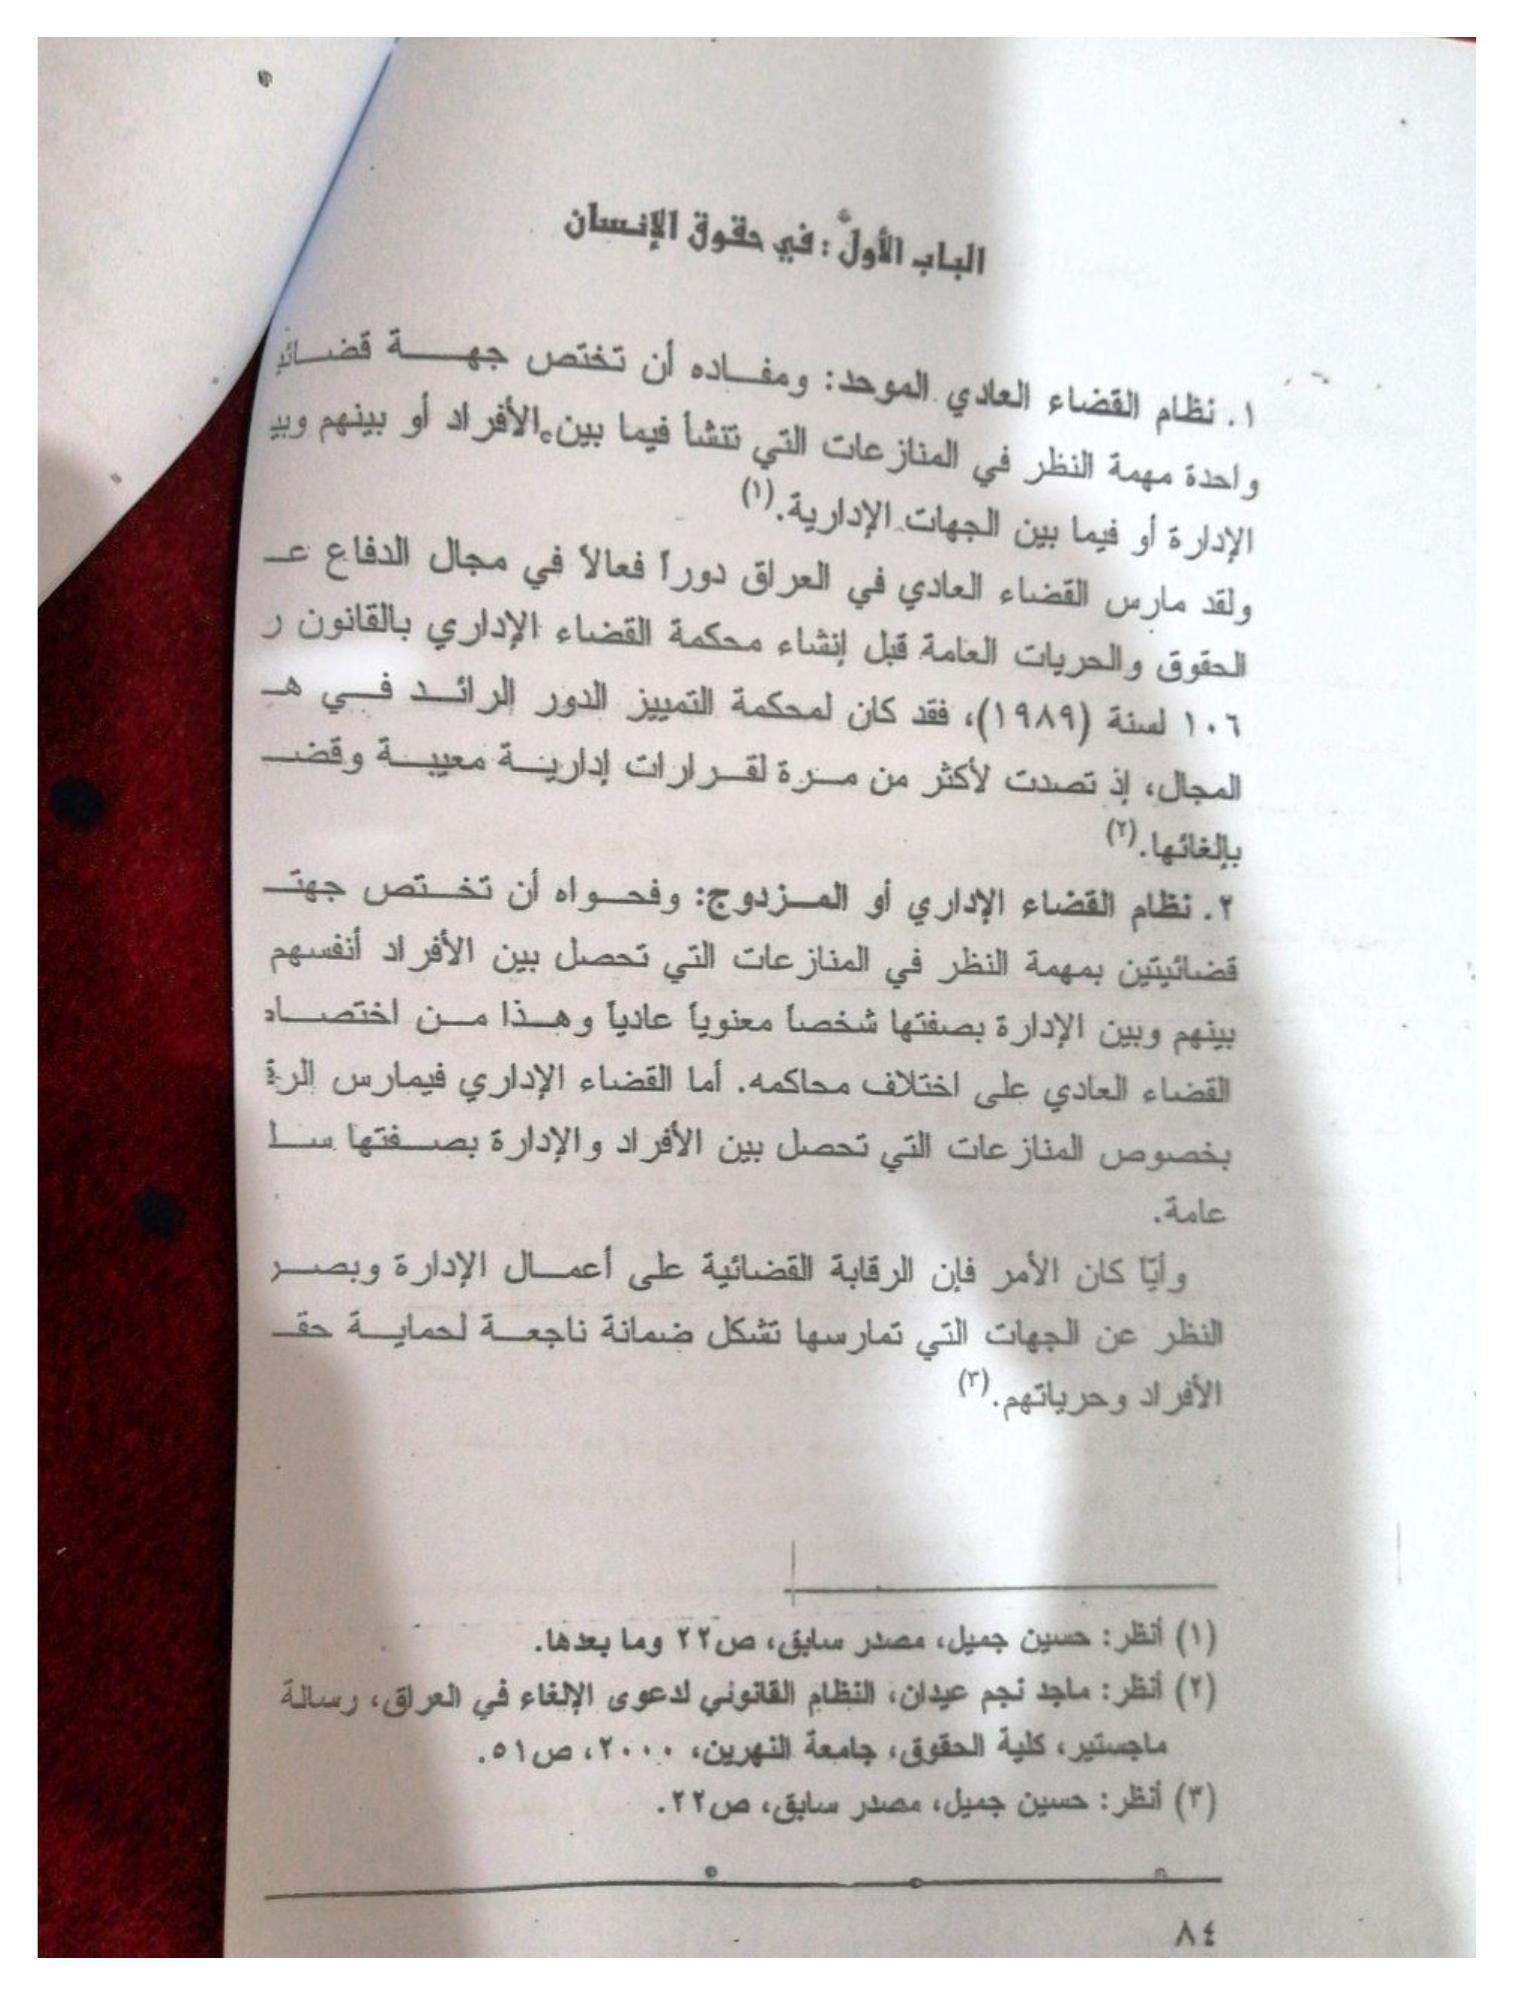 الباب الأول : في حقوق الإنسان
١. نظام القضاء العادي الموحد: ومفاده أن تختص جهة قضائ
واحدة مهمة النظر في المنازعات التي تنشأ فيما بين الأفراد أو بينهم وبي
الإدارة أو فيما بين الجهات الإدارية.(١)
ولقد مارس القضاء العادي في العراق دوراً فعالاً في مجال الدفاع عـ
الحقوق والحريات العامة قبل إنشاء محكمة القضاء الإداري بالقانون ر
١٠٦ لسنة (١٩٨٩)، فقد كان لمحكمة التمييز الدور الرائد في هـ
المجال، إذ تصدت لأكثر من مرة لقرارات إدارية معيبة وقضـ
بإلغائها.(٢)
٢. نظام القضاء الإداري أو المزدوج: وفحواه أن تختص جهتـ
قضائيتين بمهمة النظر في المنازعات التي تحصل بين الأفراد أنفسهم
بينهم وبين الإدارة بصفتها شخصاً معنوياً عادياً وهذا من اختصا
القضاء العادي على اختلاف محاكمه. أما القضاء الإداري فيمارس الرق
بخصوص المنازعات التي تحصل بين الأفراد والإدارة بصفتها سلـ
عامة.
وأيّا كان الأمر فإن الرقابة القضائية على أعمال الإدارة وبصر
النظر عن الجهات التي تمارسها تشكل ضمانة ناجعة لحماية حقـ
الأفراد وحرياتهم.(٣)
(١) أنظر: حسين جميل، مصدر سابق، ص٢٢ وما بعدها.
(٢) أنظر: ماجد نجم عيدان، النظام القانوني لدعوى الإلغاء في العراق، رسالة
ماجستير، كلية الحقوق، جامعة النهرين، ٢٠٠٠، ص٥١.
(٣) أنظر: حسين جميل، مصدر سابق، ص٢٢.
٨٤